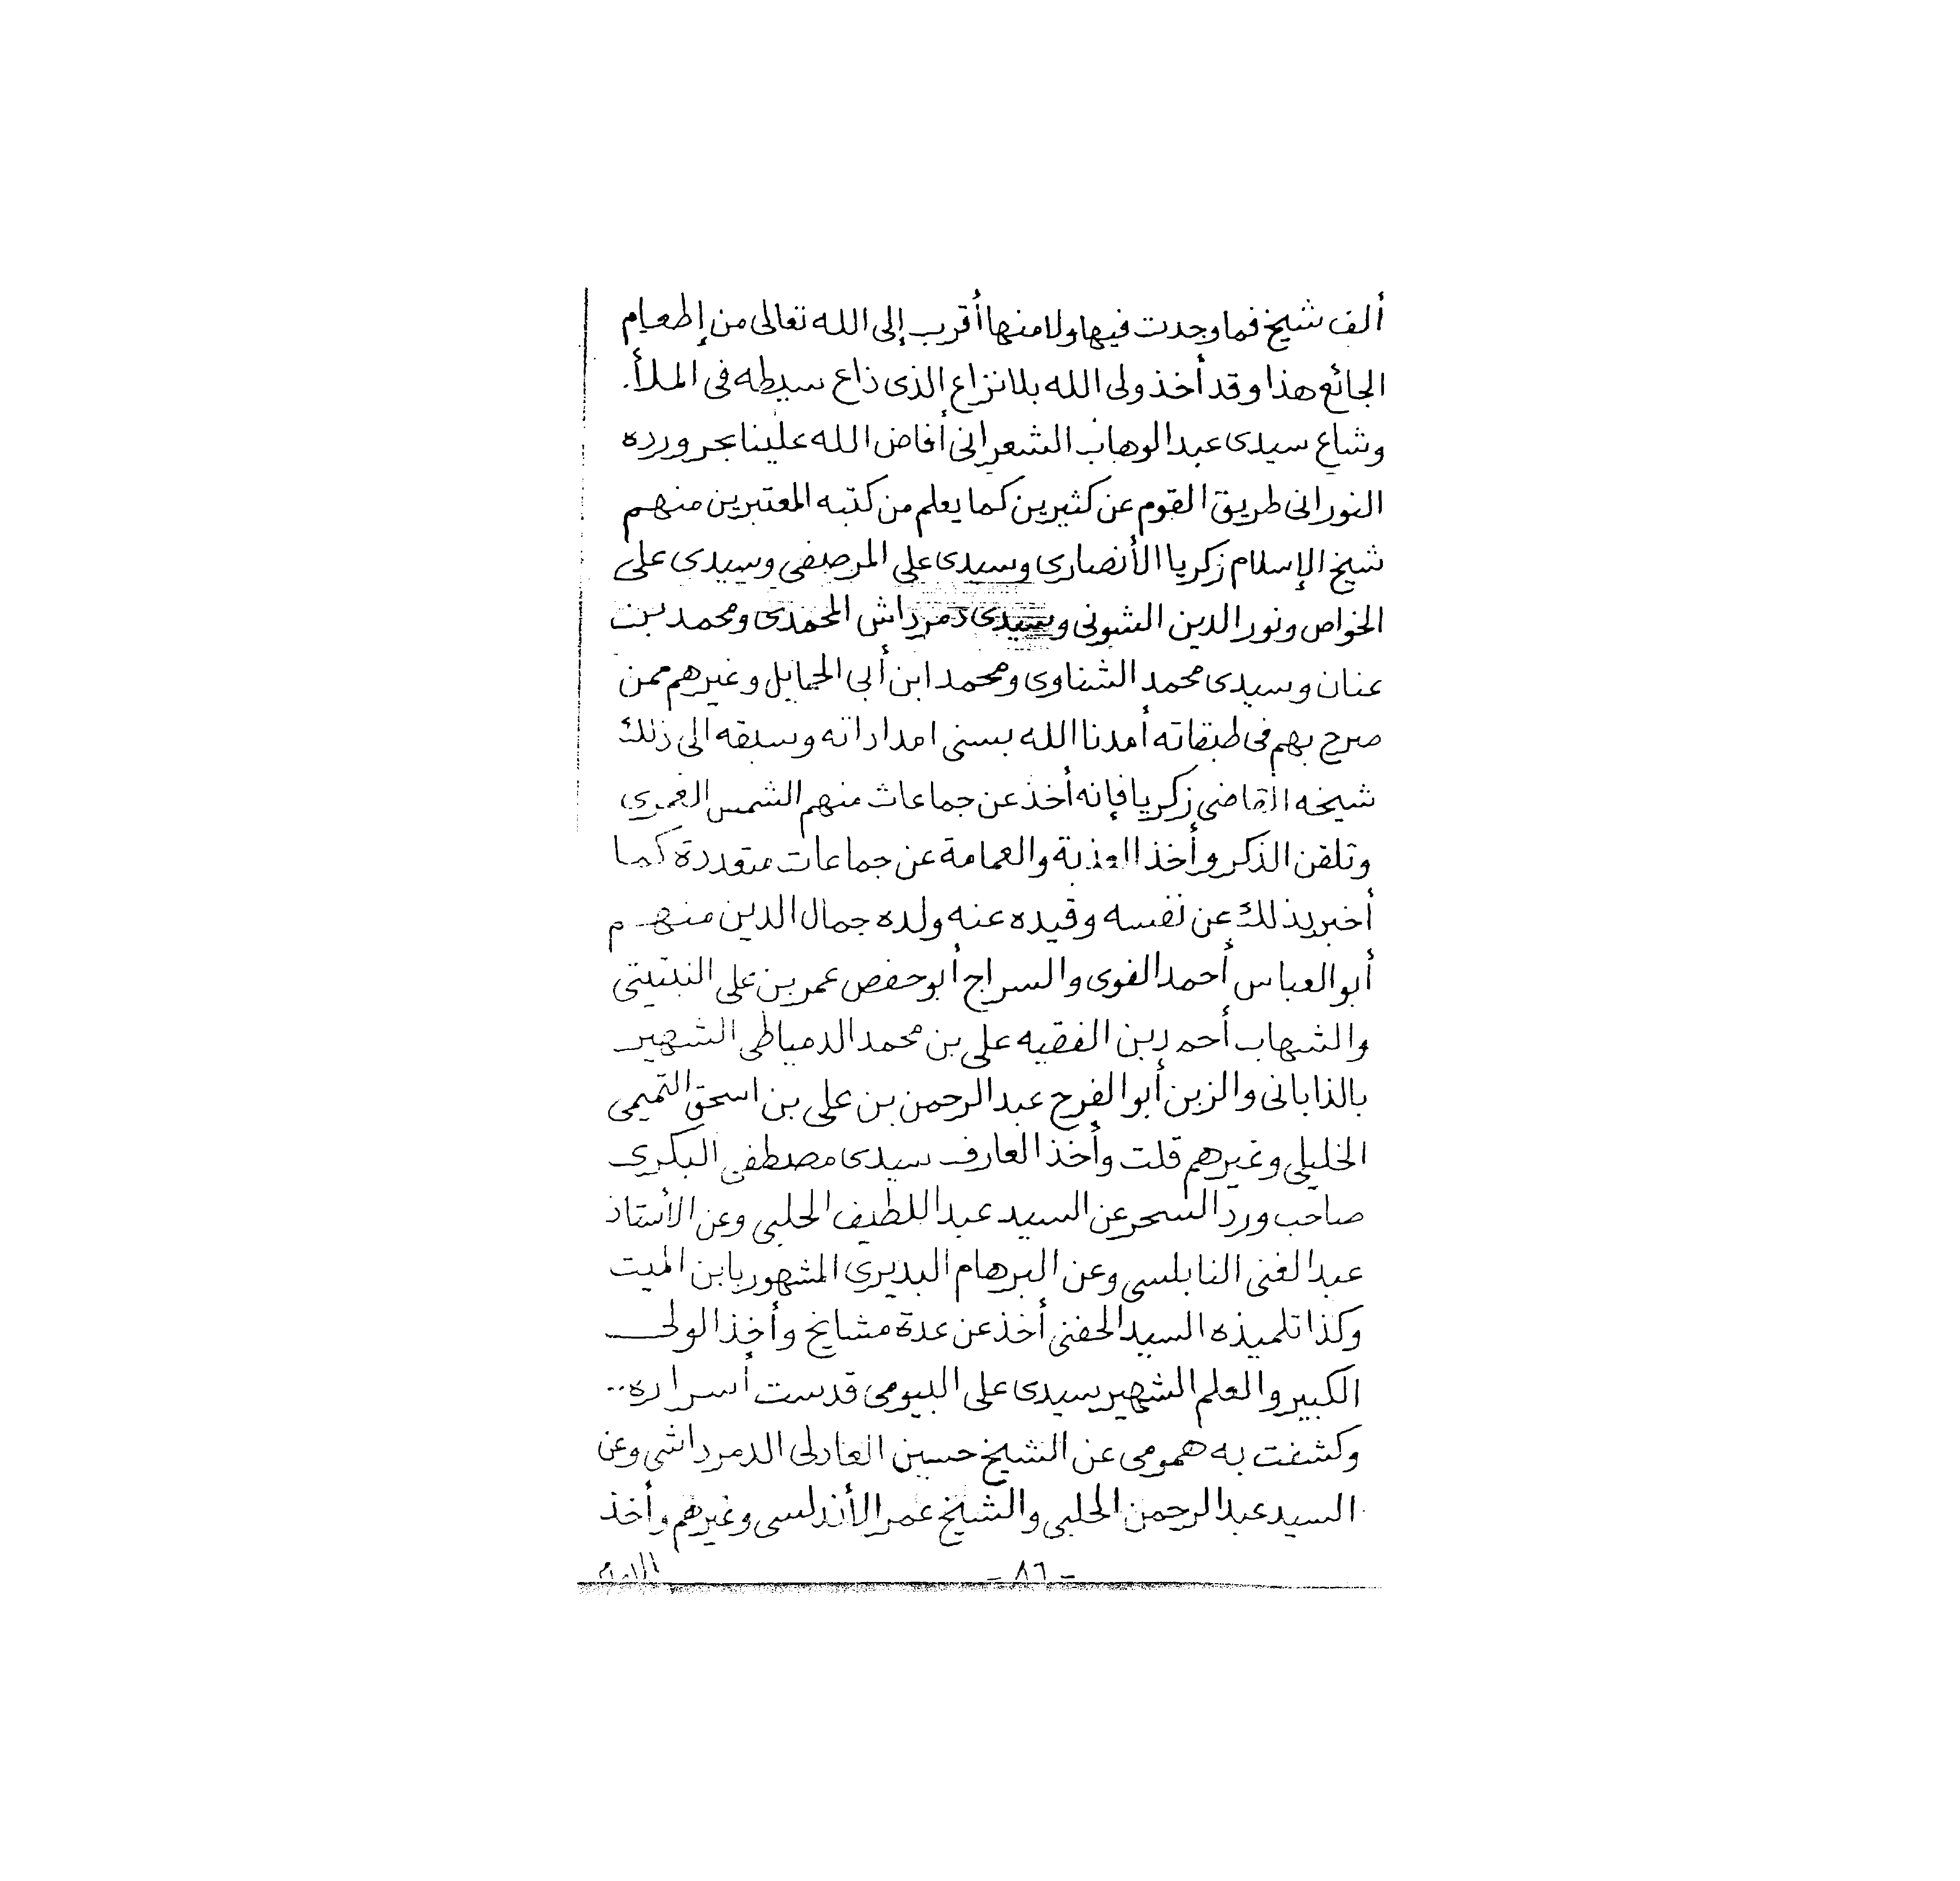 ألف شيخ فما وجدت فيها ولا منها أقرب إلى الله تعالى من إطعام
الجائع هذا وقد أخذ ولى الله بلا نزاع الذى ذاع سيطه فى الملأ.
وشاع سيدى عبد الوهاب الشعرانى أفاض الله علينا بحر ورده
النورانى طريق القوم عن كثيرين كما يعلم من كتبه المعتبرين منهم
شيخ الإسلام زكريا الأنصارى وسيدى على المرصفى وسيدى على
الخواص ونور الدين الشونى وسيدى دمرداش المحمدى ومحمد بن
عنان وسيدى محمد الشناوى ومحمد ابن أبى الحمايل وغيرهم ممن
صرح بهم فى طبقاته أمدنا الله بسنى امداداته وسبقه الى ذلك
شيخه القاضى زكريا فإنه أخذ عن جماعات منهم الشمس الغمرى
وتلقن الذكر وأخذ العذبة والعمامة عن جماعات متعددة كما
أخبر بذلك عن نفسه وقيده عنه ولده جمال الدين منهم
أبو العباس أحمد الفوى والسراج أبو حفص عمر بن على النبتيتى
والشهاب أحمد بن الفقيه على بن محمد الدمياطى الشهير
بالذابانى والزين أبو الفرح عبد الرحمن بن على بن اسحق التميمى
الخليلى وغيرهم قلت وأخذ العارف سيدى مصطفى البكرى
صاحب ورد السحر عن السيد عبد اللطيف الحلبى وعن الأستاذ
عبد الغنى النابلسى وعن البرهام البديرى المشهور بابن الميت
وكذا تلميذه السيد الحفنى أخذ عن عدة مشايخ وأخذ الولى
الكبير والعلم الشهير سيدى على البيومى قدست أسراره..
وكشفت به همومى عن الشيخ حسين العادلى الدمرداشى وعن
السيد عبد الرحمن الحلبى والشيخ عمر الأندلسى وغيرهم وأخذ
- ٨٦ -